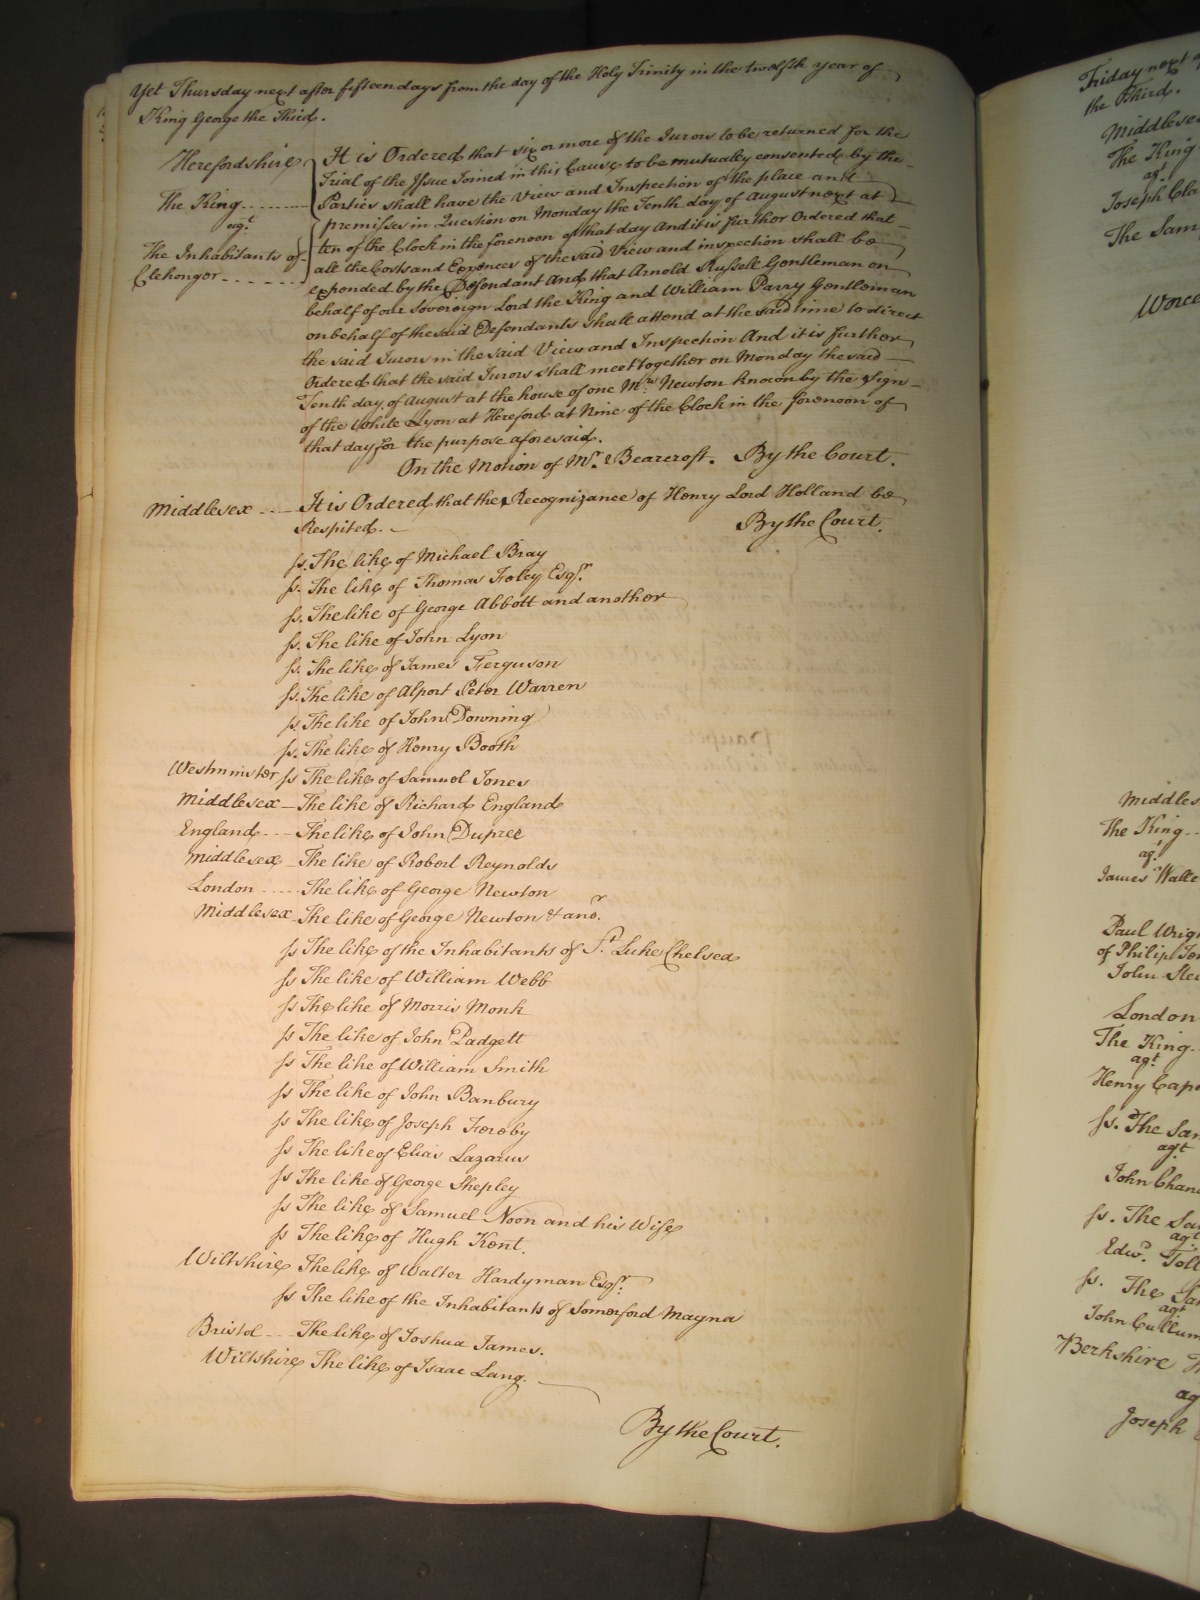 Yet Thursday next after fifteen days from the day of the Holy Trinity in the twelfth year of
King George the Third.
Herefordshire
The King
agt
The Inhabitants of
Clehonger
It is Ordered that six or more of the Jurors to be returned for the
Trial of the Issue Joined in this Cause to be mutually consented by the
Parties shall have the View and Inspection of the place and
premises in Question on Monday the Tenth day of August next at
ten of the Clock in the forenoon of that day And it is further Ordered that
all the Costs and Expences of the said View and inspection shall be
expended by the Defendant And that Arnold Russell Gentleman on
behalf of our Sovereign Lord the King and William Parry Gentleman
on behalf of the said Defendants shall attend at the said time to direct
the said Jurors in the said View and Inspection And it is further
Ordered that the said Jurors shall meet together on Monday the said
Tenth day of August at the house of one Mrs Newton known by the Sign
of the White Lyon at Hereford at Nine of the Clock in the forenoon of
that day for the purpose aforesaid.
On the Motion of Mr. Bearcroft. By the Court.
Middlesex It is Ordered that the Recognizance of Henry Lord Holland be
Respited. By the Court.
ss. The like of Michael Bray
ss. The like of Thomas Foley Esqr.
ss. The like of George Abbott and another
ss. The like of John Lyon
ss. The like of James Ferguson
ss. The like of Alport Peter Warren
ss. The like of John Downing
ss. The like of Henry Booth
Westminster ss The like of Samuel Jones
Middlesex The like of Richard England
England The like of John Dupree
Middlesex The like of Robert Reynolds
London The like of George Newton
Middlesex The like of George Newton & anor.
ss The like of the Inhabitants of St. Luke Chelsea
ss The like of William Webb
ss The like of Morris Monk
ss The like of John Padgett
ss The like of William Smith
ss The like of John Banbury
ss The like of Joseph Fereby
ss The like of Elias Lazarus
ss The like of George Shepley
ss The like of Samuel Noon and his Wife
ss The like of Hugh Kent.
Wiltshire The like of Walter Hardyman Esqr.
ss The like of the Inhabitants of Somerford Magna
Bristol The like of Joshua James.
Wiltshire The like of Isaac Lang.
By the Court.
Friday next
the Third.
Middlesex
The King
agt
Joseph Cla
The Sam
Worce
Middles
The King
agt
James Walte
Paul Wrigh
of Philip
John
London
The King
agt
Henry Cap
ss. The Sam
agt
John Chan
ss. The Sa
agt
Edwd. Toll
ss. The Sa
agt
John Cullum
Berkshire
ag
Joseph